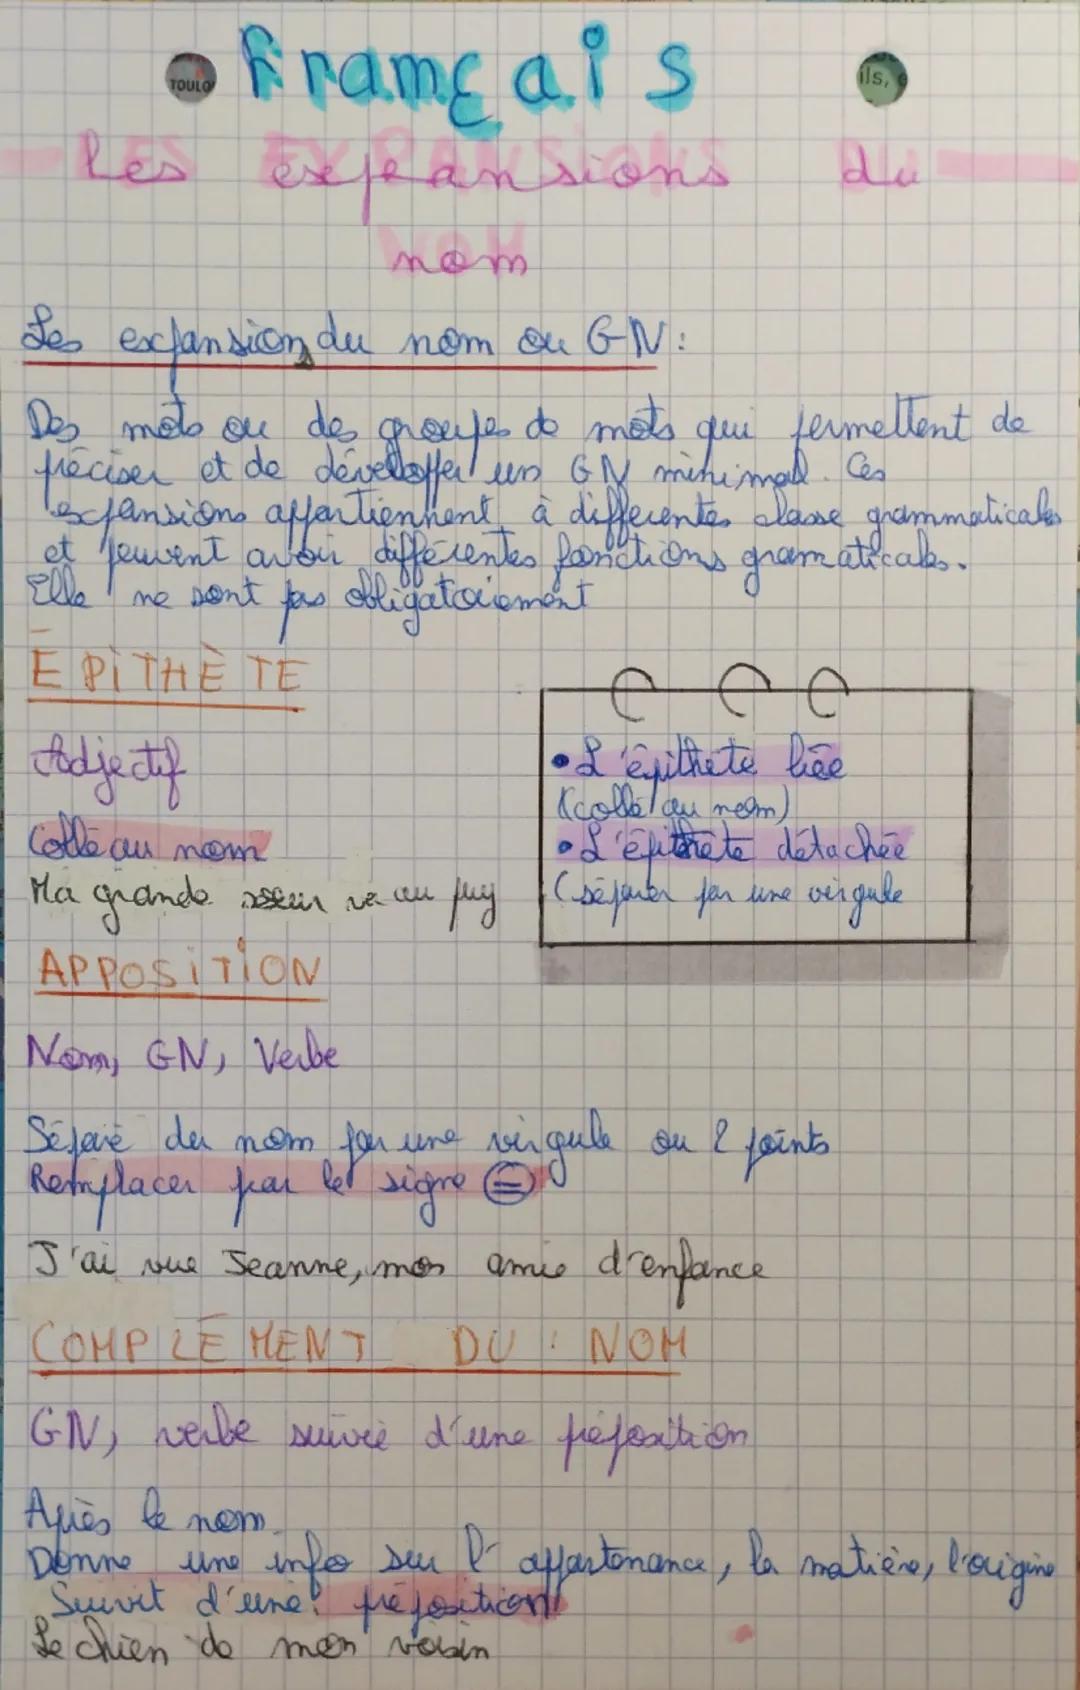 TOULO
Français
ils, e
Les expansions du
nom
Les expansions du nom ou GN :
Des mots ou des groupes de mots qui permettent de
préciser et de développer un GN minimal. Ces
expansions appartiennent à différentes classe grammaticales
et peuvent avoir différentes fonctions gramaticales.
Elle ne sont pas obligatoirement
ÉPITHÈTE
Adjectif
Collé au nom
Ma grande soeur va au puy
• L'épithète liée
(collé au nom)
• L'épithète détachée
(séparer par une virgule
APPOSITION
Nom, GN, Verbe
Séparé du nom par une virgule ou 2 points
Remplacer par le signe =
J'ai vue Jeanne, mon amie d'enfance
COMPLÉMENT DU NOM
GN, verbe suivie d'une préposition
Après le nom
Donne une info sur l'appartenance, la matière, l'origine
Suivit d'une préposition
Le chien de mon voisin